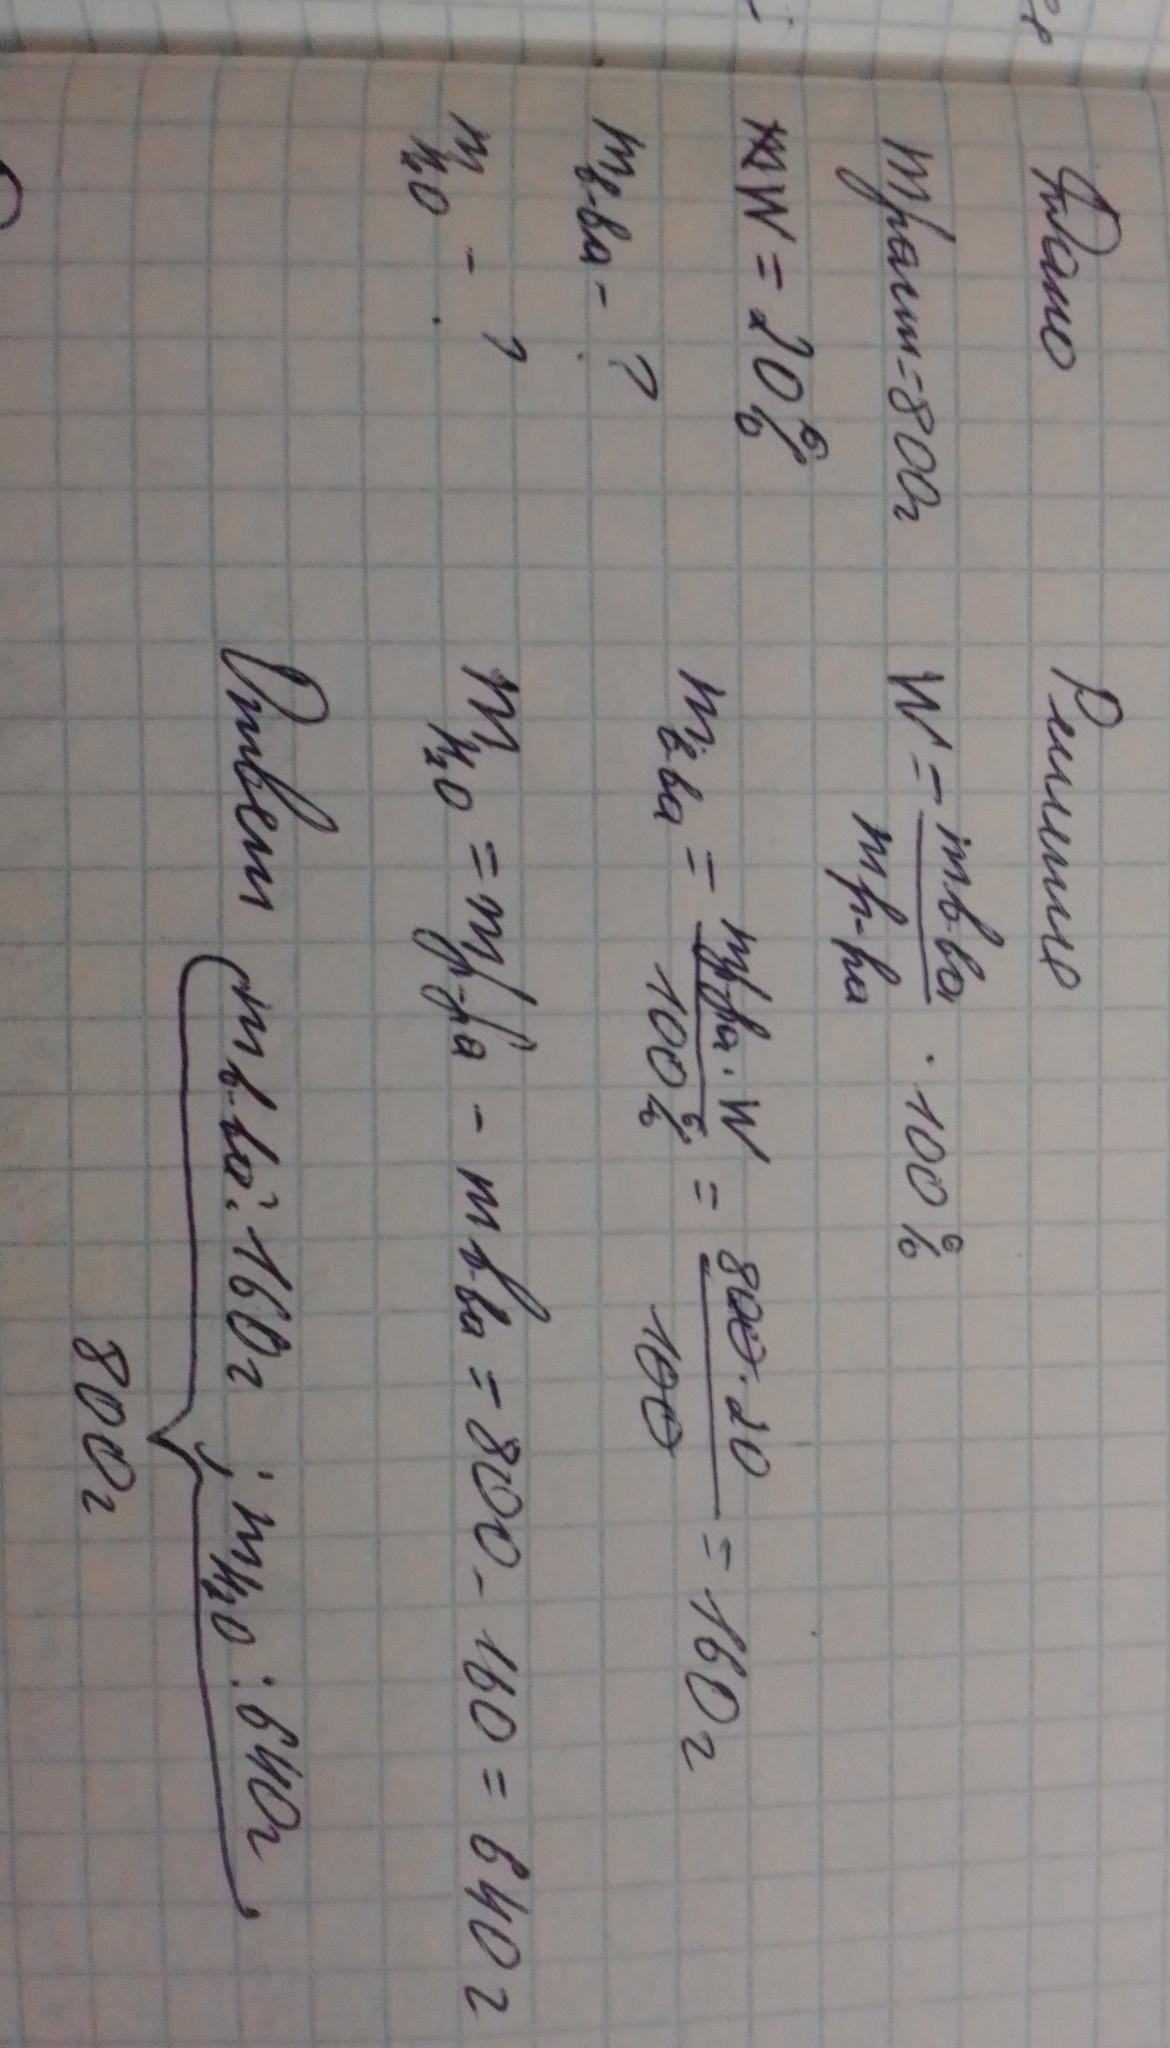 Дано
m раст = 800г
W = 20%
m в-ва - ?
m H₂O - ?
Решение
W = m в-ва / m р-ра · 100%
m в-ва = m р-ра · W / 100% = 800 · 20 / 100 = 160 г
m H₂O = m р-ра - m в-ва = 800 - 160 = 640 г
Ответ m в-ва: 160г ; m H₂O : 640г
800г